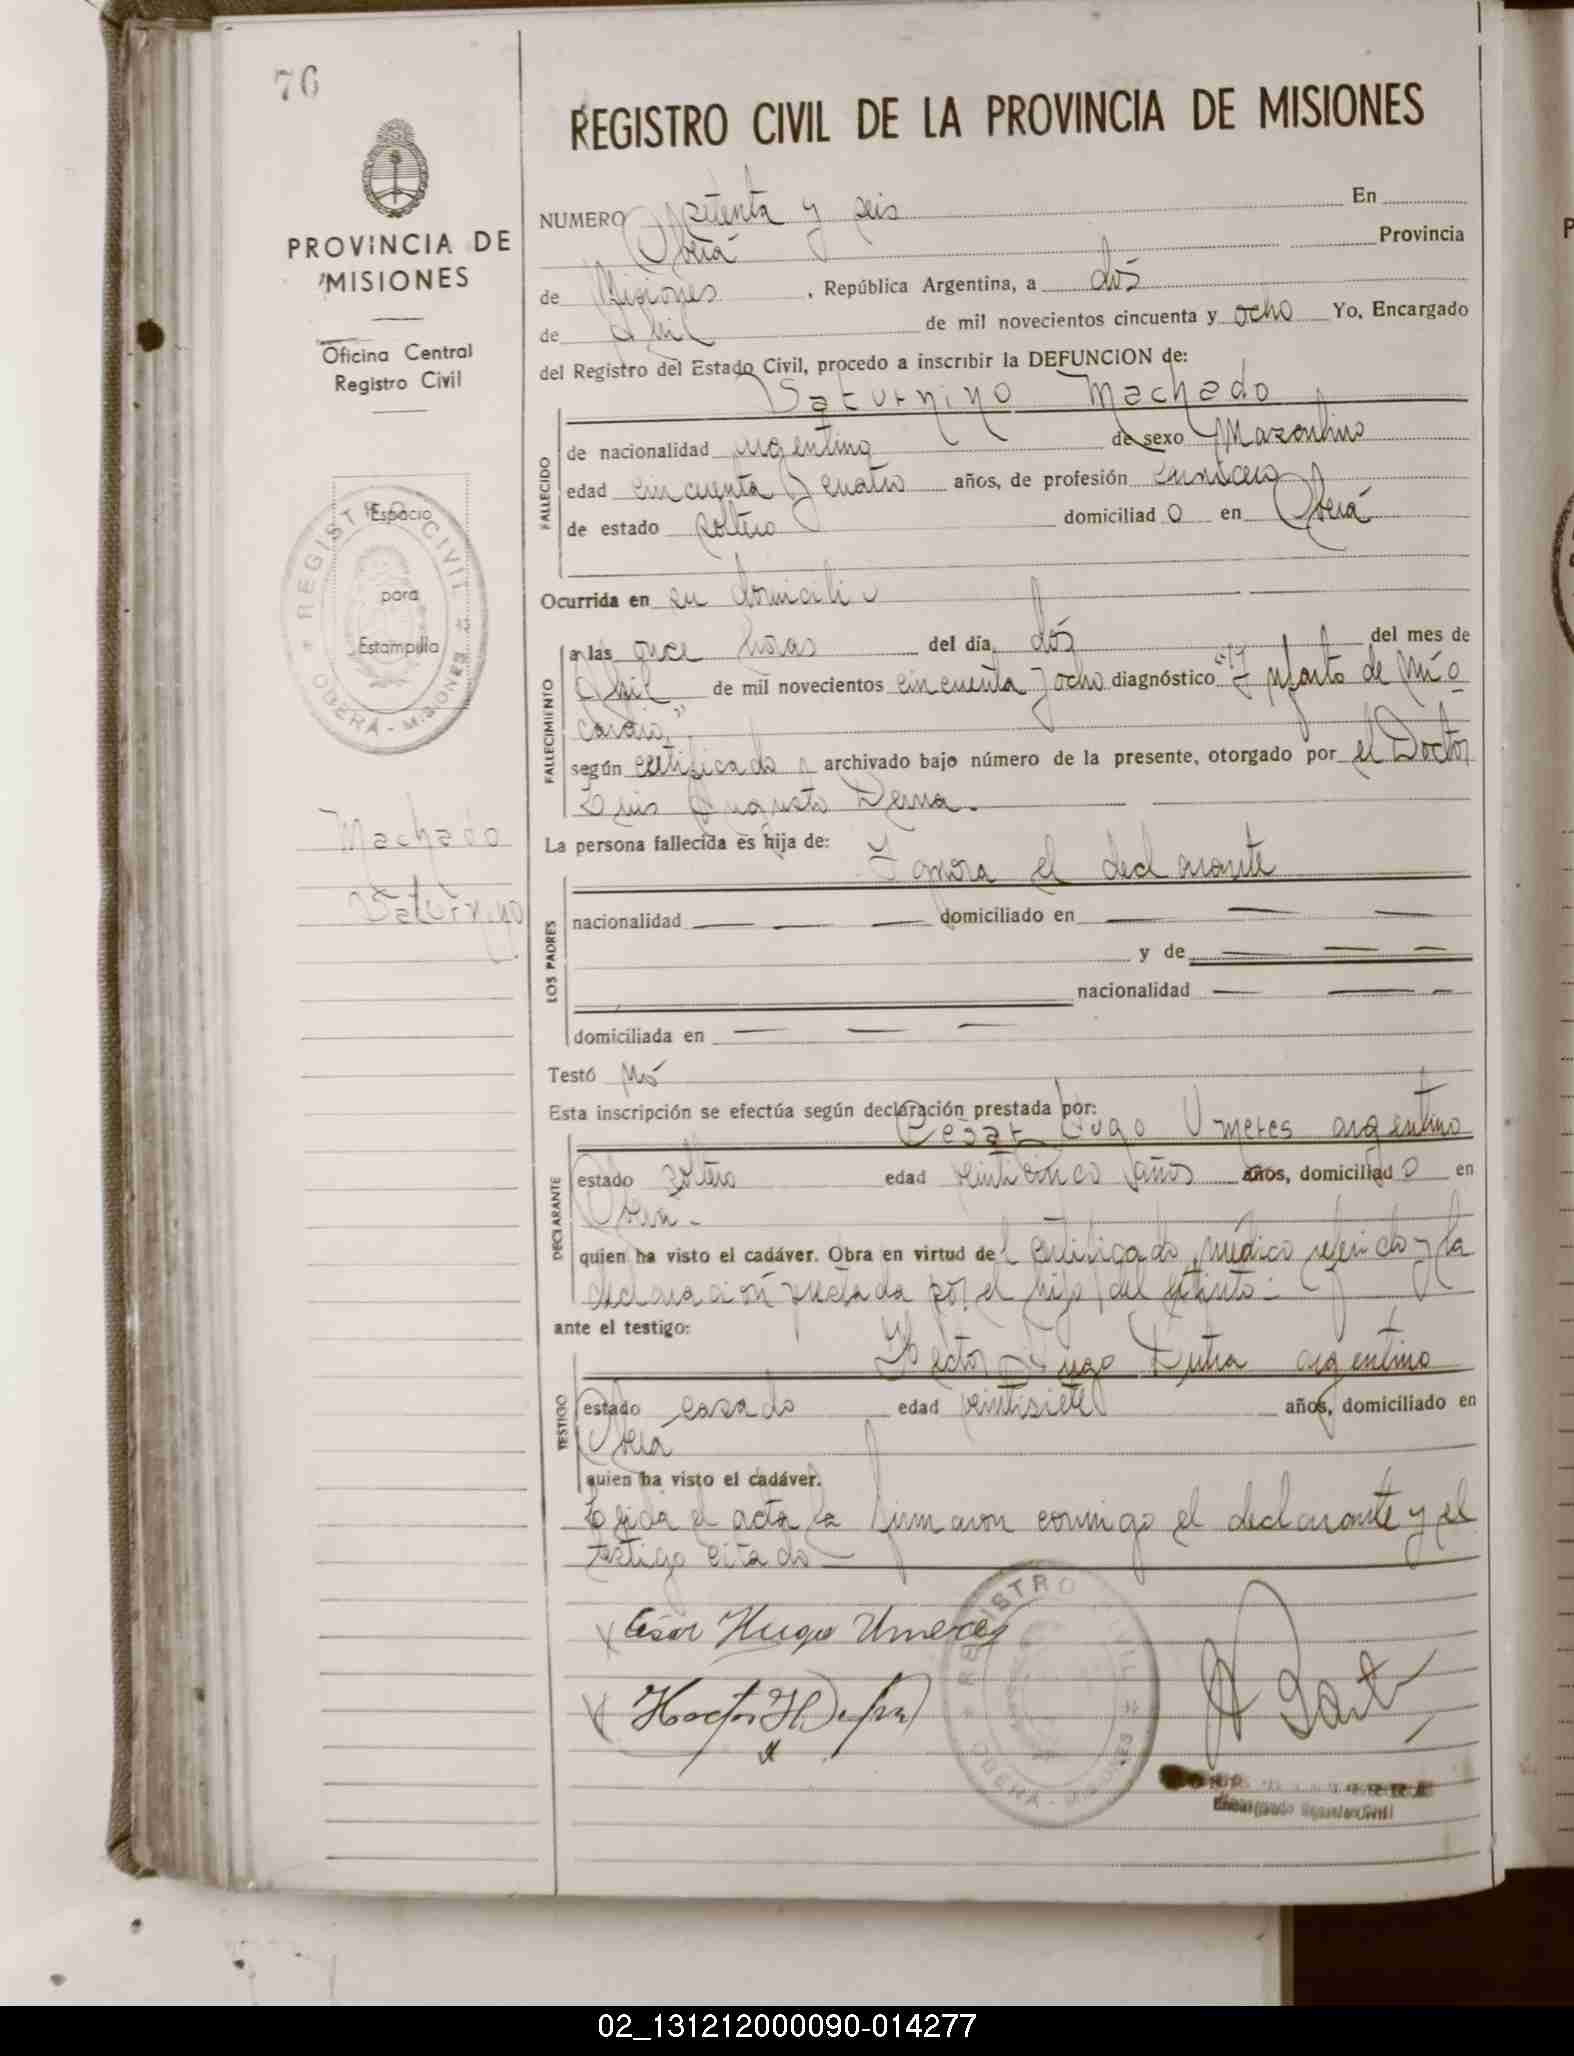 76
PROVINCIA DE
MISIONES
Oficina Central
Registro Civil
Espacio
para
Estampilla
REGISTRO CIVIL
OBERÁ - MISIONES
Machado
Saturnino
REGISTRO CIVIL DE LA PROVINCIA DE MISIONES
NUMERO Setenta y seis En
Oberá Provincia
de Misiones , República Argentina, a dós
de Abril de mil novecientos cincuenta y ocho Yo, Encargado
del Registro del Estado Civil, procedo a inscribir la DEFUNCION de:
Saturnino Machado
FALLECIDO
de nacionalidad argentina de sexo Mazculino
edad cincuenta y cuatro años, de profesión
de estado soltero domiciliad o en Oberá
Ocurrida en su domicilio
FALLECIMIENTO
a las once horas del día dós del mes de
Abril de mil novecientos cincuenta y ocho diagnóstico "Infarto de mío
cardio"
según certificado archivado bajo número de la presente, otorgado por el Doctor
Luis Augusto Derna.
La persona fallecida es hija de: Ignora el declarante
LOS PADRES
nacionalidad domiciliado en
y de
nacionalidad
domiciliada en
Testó nó
Esta inscripción se efectúa según declaración prestada por:
Cesar Hugo Umeres argentino
DECLARANTE
estado zoltero edad veinticinco años años, domiciliad o en
Oberá.-
quien ha visto el cadáver. Obra en virtud del certificado médico referido y la
declaración prestada por el hijo del extinto.-
ante el testigo:
Hector Hugo Dutra argentino
TESTIGO
estado casado edad veintisiete años, domiciliado en
Oberá
quien ha visto el cadáver.
Leida el acta la firmaron conmigo el declarante y el
testigo citado
César Hugo Umeres
Hector H Dutra
REGISTRO CIVIL
OBERÁ - MISIONES
Encargado Registro Civil
02_131212000090-014277